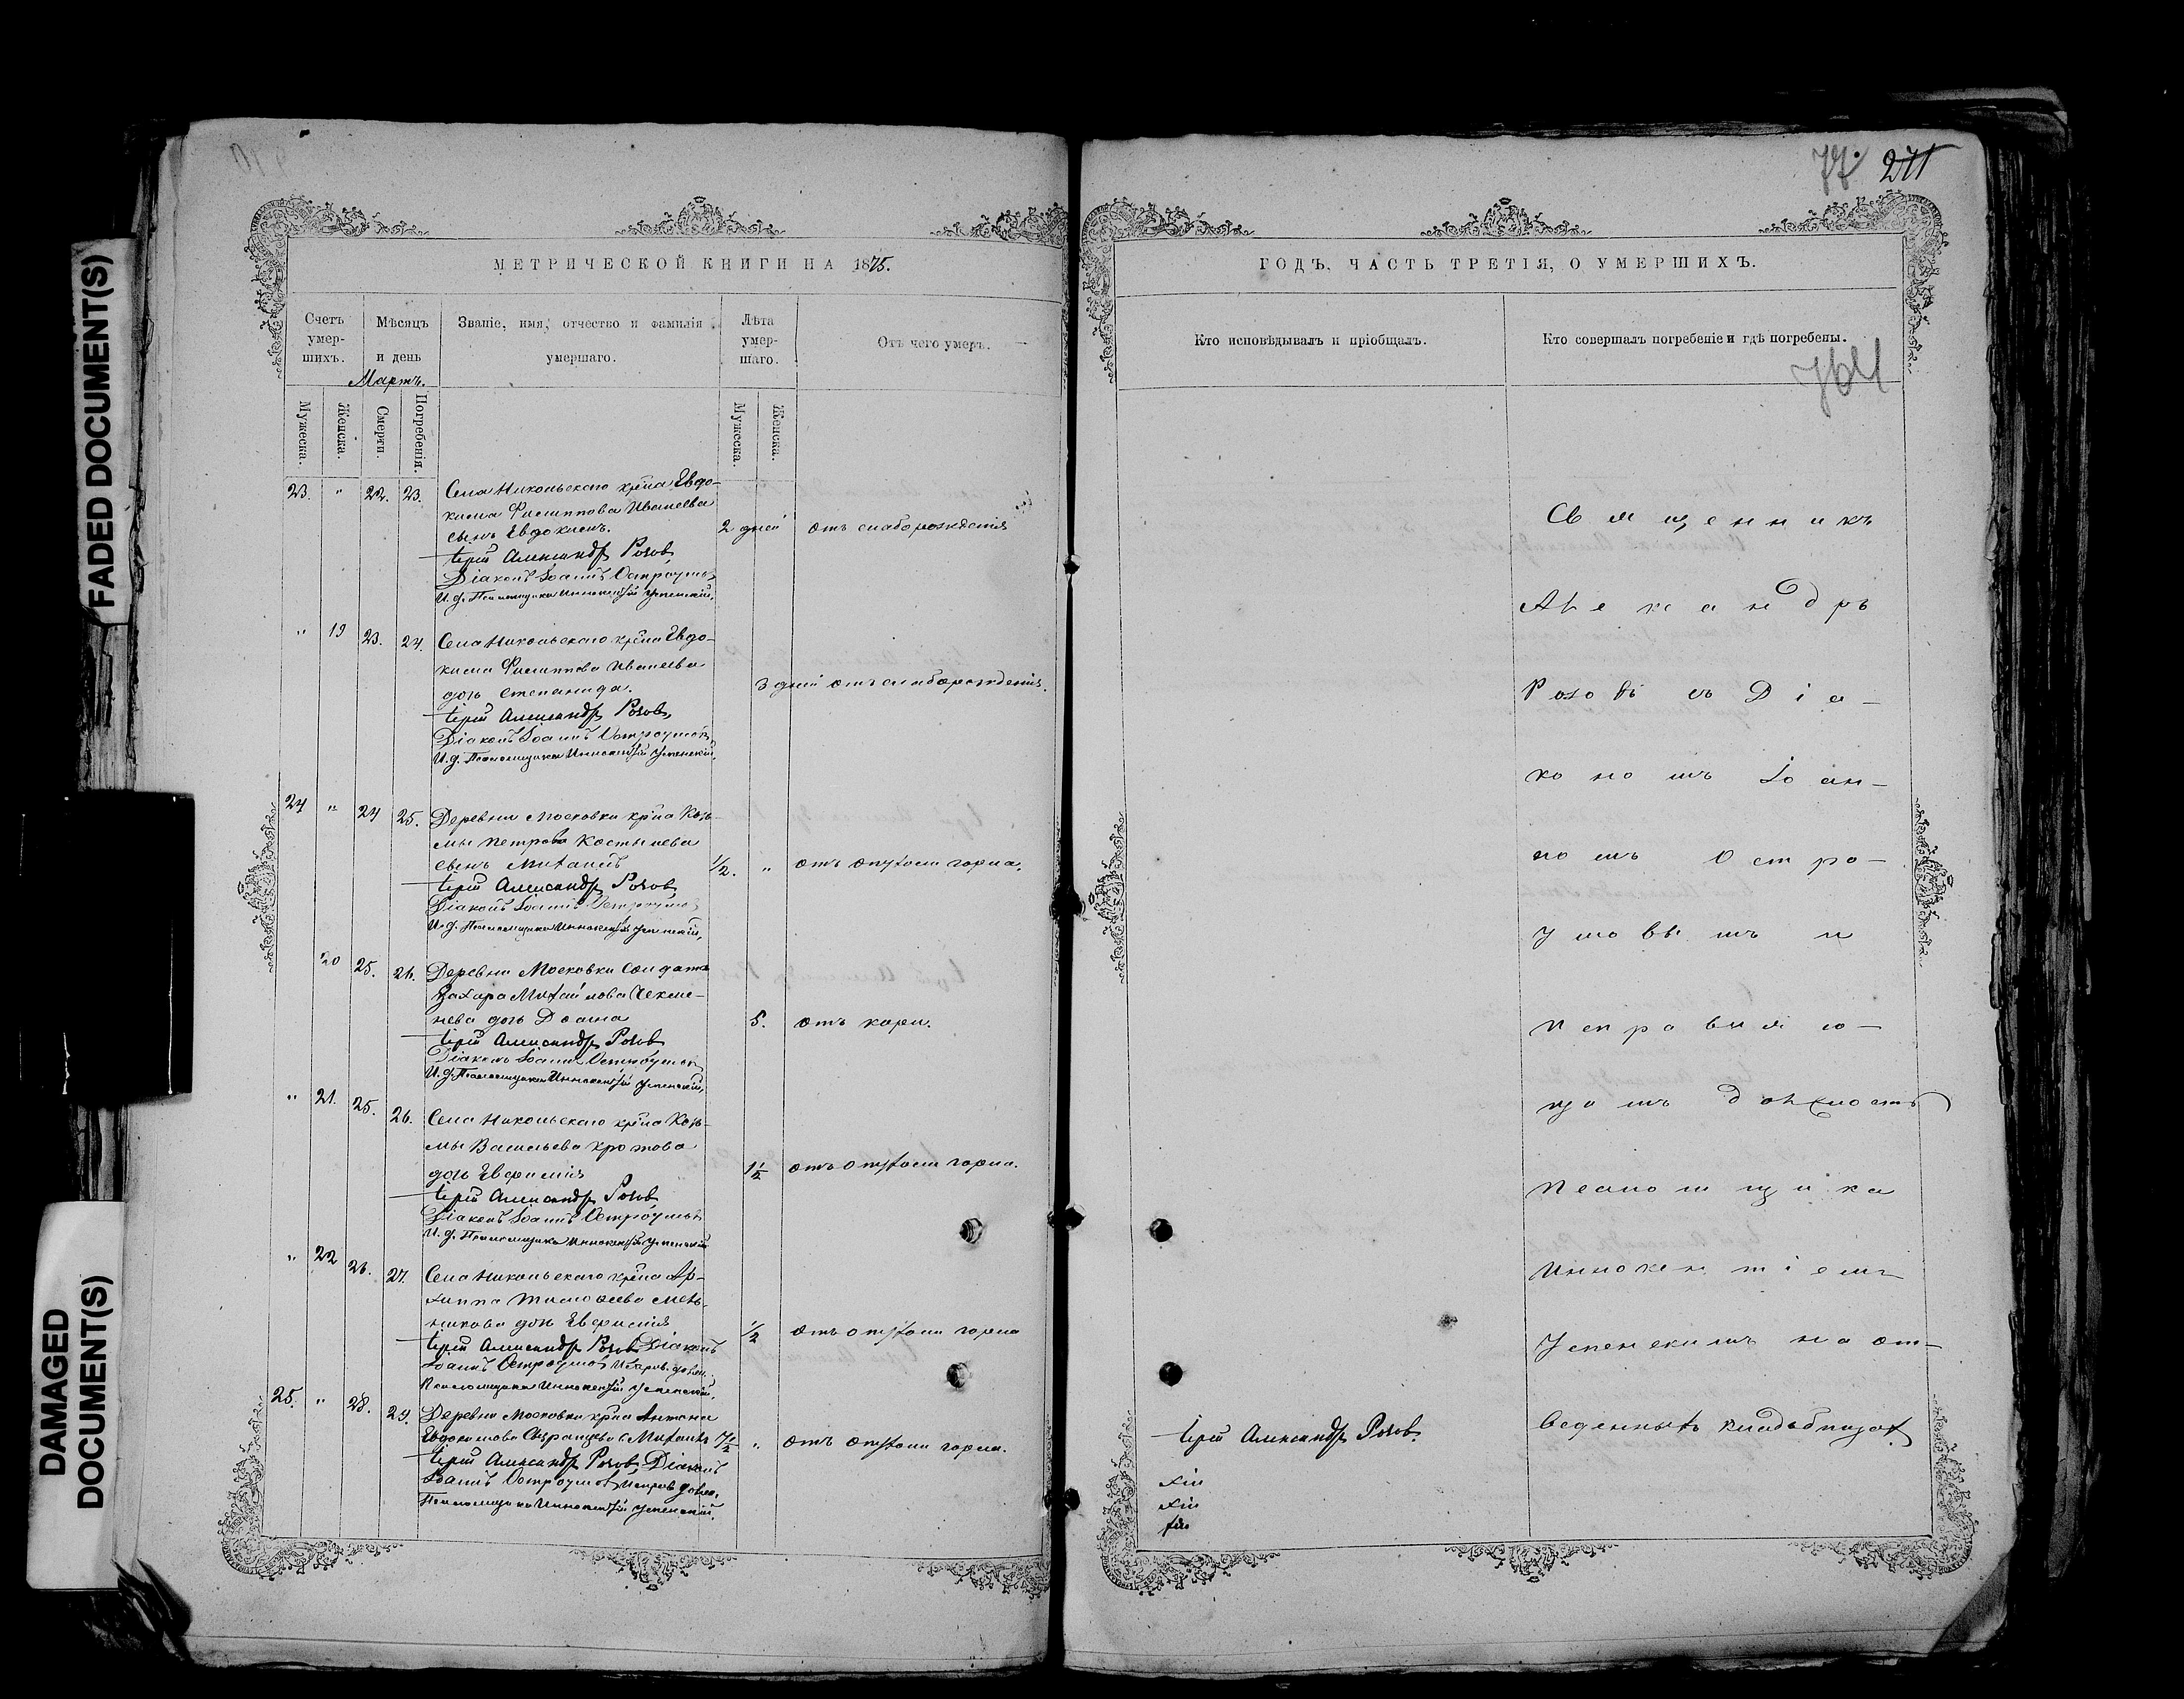 FADED DOCUMENT(S)
DAMAGED
DOCUMENT(S)
МЕТРИЧЕСКОЙ КНИГИ НА 1875.
Счетъ умер-шихъ.
Мѣсяцъ и день
Мартъ.
Званіе, имя, отчество и фамилія умершаго.
Лѣта умер-шаго.
Отъ чего умеръ.
Мужеска.
Женска.
Смерти.
Погребенія.
Мужеска.
Женска.
23. " 22. 23. Села Никольскаго крѣна Евдо-
кима Филиппова Иванеева
сынъ Евдокимъ. 2 дней отъ слаборожденія
Іерей Александръ Розовъ
Діаконъ Іоаннъ Остроумовъ
И. д. Псаломщика Иннокентій Успенскій.
" 19 23. 24. Села Никольскаго крѣна Евдо-
кима Филиппова Иванеева
дочь Степанида. 3 дней отъ слаборожденія.
Іерей Александръ Розовъ
Діаконъ Іоаннъ Остроумовъ
И. д. Псаломщика Иннокентій Успенскій.
24 " 24 25. Деревни Московки крѣна Козь-
мы Петрова
сынъ Михаилъ 1/2. " отъ опухоли горла.
Іерей Александръ Розовъ
Діаконъ Іоаннъ Остроумовъ
И. д. Псаломщика Иннокентій Успенскій,
20 25. 26. Деревни Московки Солдата
Захара Михайлова Чекме-
нева дочь Домна 5. отъ кори.
Іерей Александръ Розовъ
Діаконъ Іоаннъ Остроумовъ
И. д. Псаломщика Иннокентій Успенскій,
" 21. 25. 26. Села Никольскаго крѣна Козь-
мы Васильева Кротова
дочь Евфимія 1 1/2 отъ опухоли горла.
Іерей Александръ Розовъ
Діаконъ Іоаннъ Остроумовъ
И. д. Псаломщика Иннокентій Успенскій
" 22 26. 27. Села Никольскаго крѣна Ар-
хиппа Тимоѳеева Мель-
никова дочь Евфимія 1/2 отъ опухоли горла
Іерей Александръ Розовъ Діаконъ
Іоаннъ Остроумовъ
Псаломщика Иннокентій Успенскій.
25. " 28. 29. Деревни Московки крѣна Антона
Евдокимова с. Михаилъ " отъ опухоли горла.
Іерей Александръ Розовъ, Діаконъ
Іоаннъ Остроумовъ
Псаломщика Иннокентій Успенскій.
77. 271
ГОДЪ, ЧАСТЬ ТРЕТІЯ, О УМЕРШИХЪ.
Кто исповѣдывалъ и пріобщалъ.
Кто совершалъ погребеніе и гдѣ погребены.
764
Священникъ
Александръ
Розовъ съ Діа-
кономъ Іоан-
номъ Остро-
умовымъ и
исправляю-
щимъ должность
псаломщика
Иннокентіемъ
Успенскимъ на от-
веденныхъ кладбищахъ.
Іерей Александръ Розовъ.